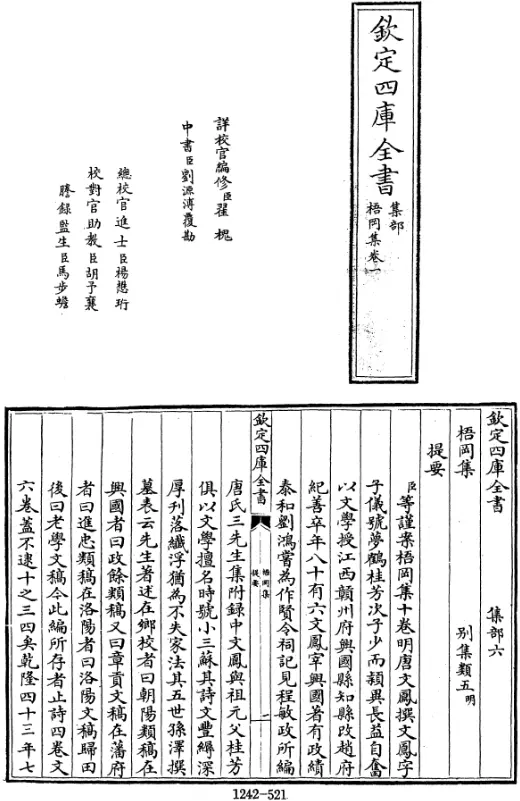 欽定四庫全書
集部
梧岡集卷一
詳校官編修臣翟槐
中書臣劉源溥覆勘
總校官進士臣楊懋珩
校對官助教臣胡予襄
謄錄監生臣馬步蟾
欽定四庫全書 集部六
梧岡集 別集類五明
提要
臣等謹案梧岡集十卷明唐文鳳撰文鳳字
子儀號夢鶴桂芳次子少而穎異長益自奮
以文學授江西贛州府興國縣知縣改趙府
紀善卒年八十有六文鳳宰興國著有政績
泰和劉鴻嘗為作賢令祠記見程敏政所編
欽定四庫全書
梧岡集
提要
一
唐氏三先生集附録中文鳳與祖元父桂芳
俱以文學擅名時號小三蘇其詩文豐縟深
厚刋落纖浮猶為不失家法其五世孫澤撰
墓表云先生著述在鄉校者曰朝陽類稿在
興國者曰政餘類稿又曰章貢文稿在藩府
者曰進忠類稿在洛陽者曰洛陽文稿歸田
後曰老學文稿今此編所存者止詩四卷文
六卷蓋不逮十之三四矣乾隆四十三年七
1242-521